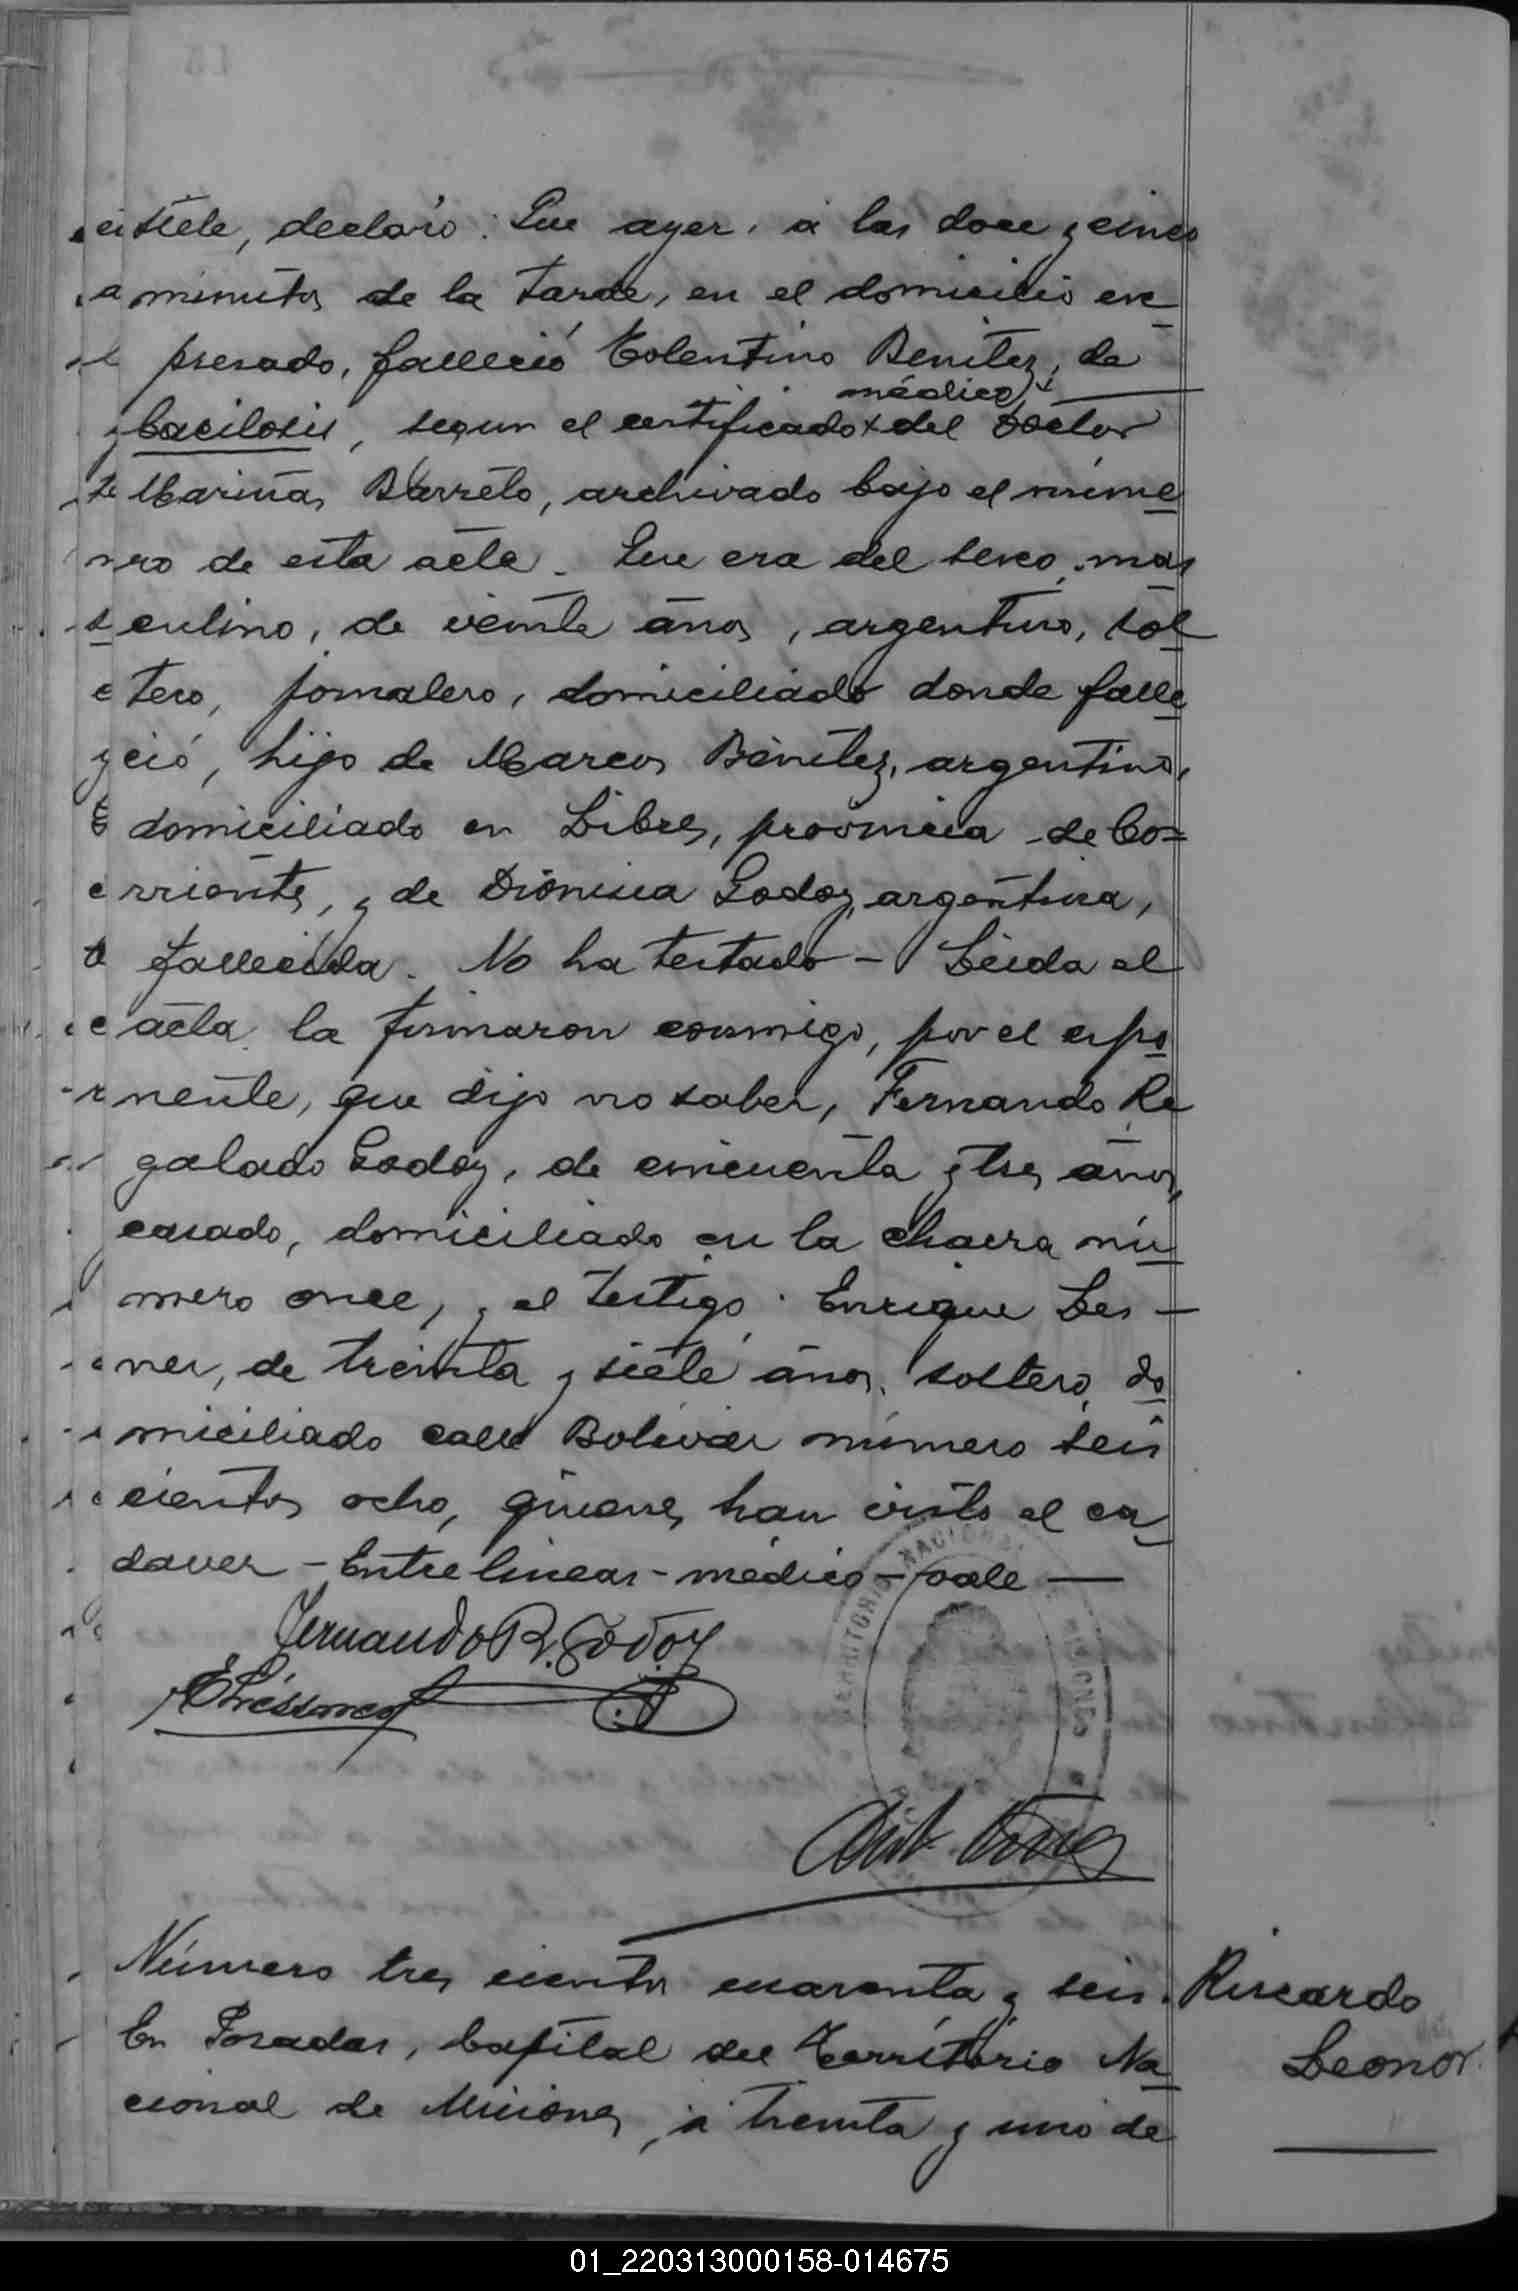 siete, declaró: Que ayer, á las doce y cinco
minutos de la tarde, en el domicilio ex
presado, falleció Tolentino Benitez, de
bacilosis, segun el certificado médico del Doctor
Mariñas Barreto, archivado bajo el núme
ro de esta acta. Que era del sexo mas
culino, de veinte años, argentino, sol
tero, jornalero, domiciliado donde falle
ció, hijo de Marcos Benitez, argentino,
domiciliado en Libres, provincia de Co=
rrientes, y de Dionisia Godoy, argentina,
fallecida. No ha testado - Leida el
acta la firmaron conmigo, por el expo
nente, que dijo no saber, Fernando Re
galado Godoy, de cincuenta y tres años,
casado, domiciliado en la chacra nú
mero once, y el testigo Enrique Les -
mes, de treinta y siete años, soltero, do
miciliado calle Bolivar número seis
cientos ocho, quienes han visto el ca
daver - Entre lineas - médico - vale —
Fernando R. Godoy
TERRITORIO NACIONAL MISIONES
Número tres cientos cuarenta y seis.
En Posadas, Capital del Territorio Na
cional de Misiones, á treinta y uno de
Riscardo
Leonor
01_220313000158-014675